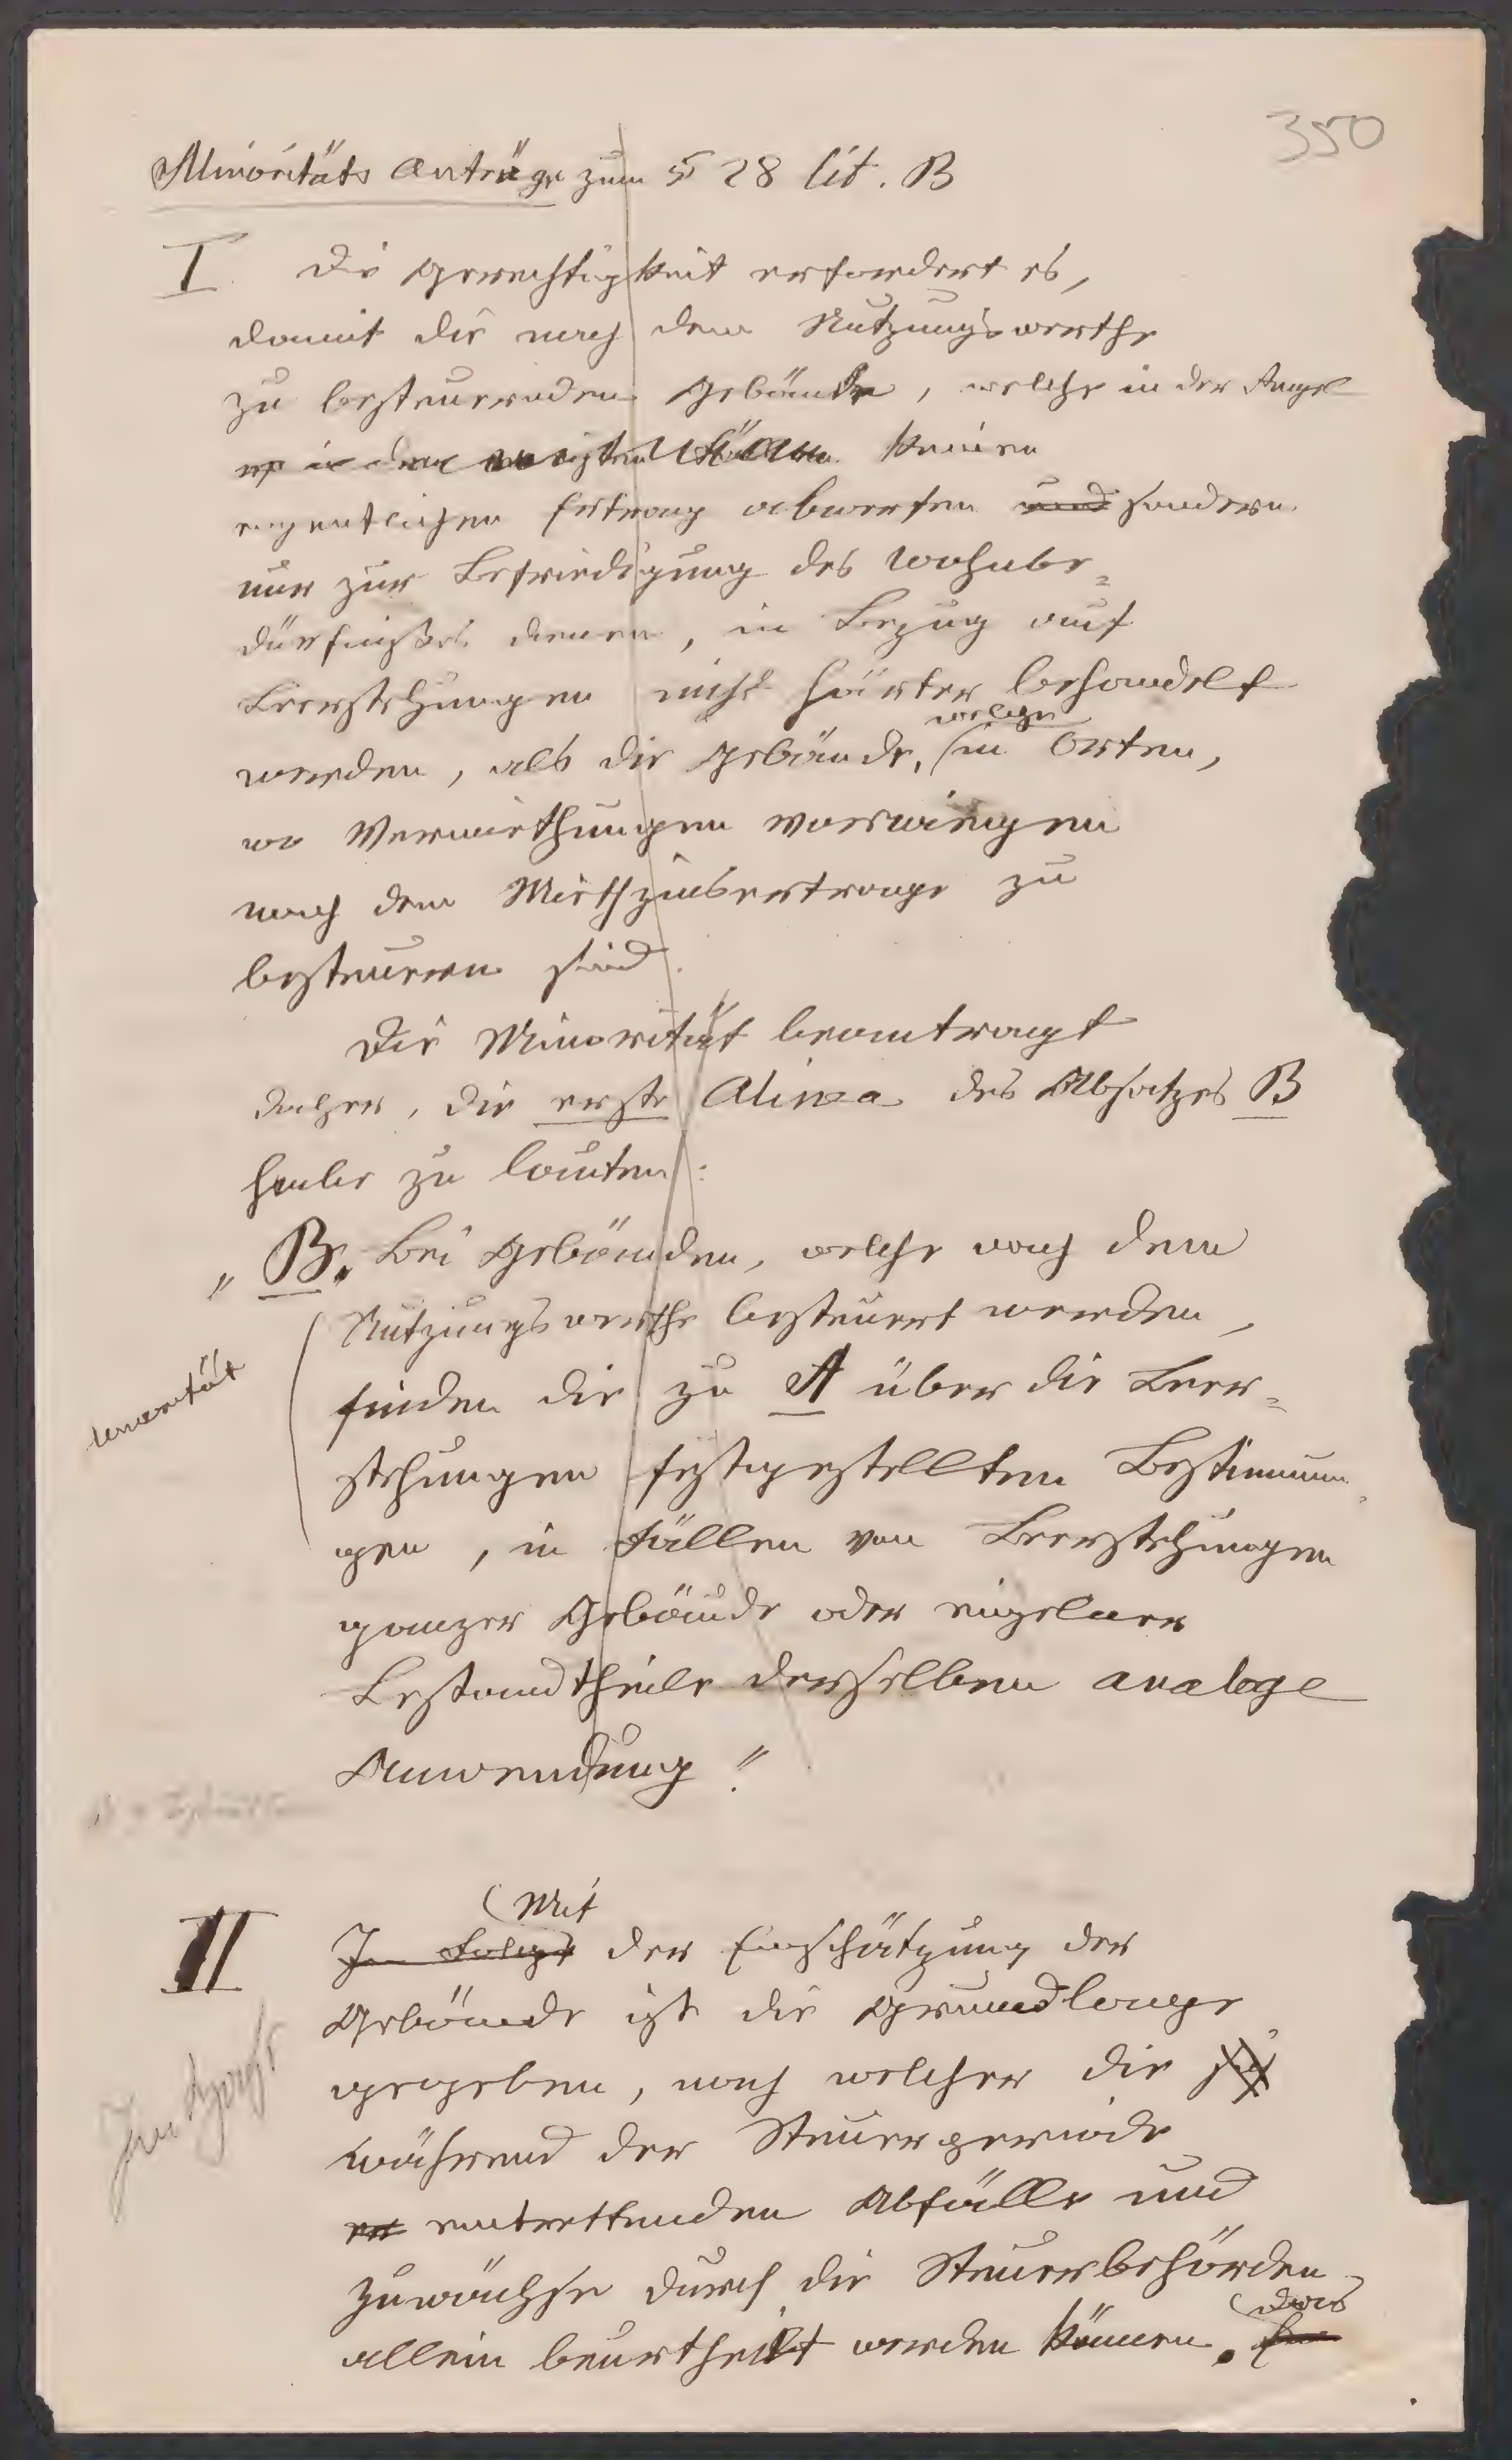 350
Minoritäts Anträge zum § 28 lit. B
I Die Gerechtigkeit erfordert es,
damit die nach dem Nutzungswerthe
zu besteuernden Gebäude, welche in der Regel
keinen
eigentlichen Ertrag abwerfen und sondern
nur zur Befriedigung des Wohnbe-
dürfnißes dienen, in Bezug auf
Leerstehungen nicht härter behandelt
welche
werden, als die Gebäude, in Orten,
wo Vermiethungen vorwiegen
nach dem Miethzinsertrage zu
besteuern sind.
Die Minorität beantragt
daher, die erste Alinea des Absatzes B
habe zu lauten:
„B. Bei Gebäuden, welche nach dem
Nutzungswerthe besteuert werden,
finden die zu A über die Leer-
stehungen festgestellten Bestimmun-
gen, in Fällen von Leerstehungen
ganzer Gebäude oder einzelner
Bestandtheile derselben analoge
Anwendung."
Minorität
(Mit
II In Folge der Einschätzung der
Gebäude ist die Grundlage
gegeben, nach welcher die sich
während der Steuerperiode
eintrettenden Abfälle und
Zuwächse durch die Steuerbehörden
allein beurtheilt werden können.